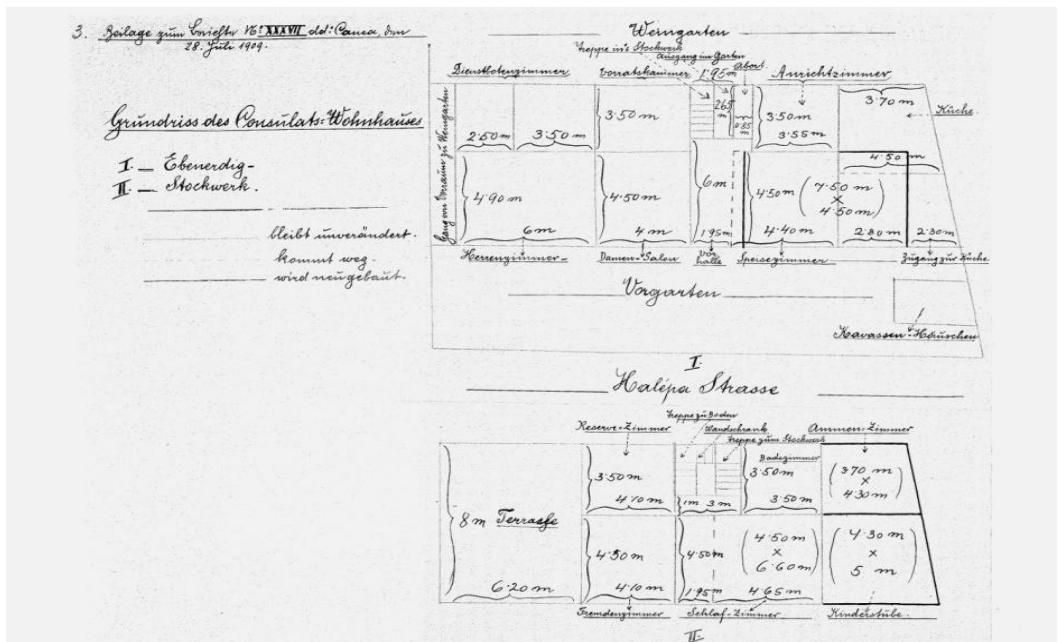 3. Beilage zum Berichte No: XXXVII dd: Canea, den
28. Juli 1909.
Grundriss des Consulats-Wohnhauses
I. — Ebenerdig -
II. — Stockwerk.
bleibt unverändert.
kommt weg.
wird neugebaut.
Weingarten
Treppe in's Stockwerk
Ausgang im Garten
Abort
Dienstbotenzimmer
Vorratskammer
1·95m
Anrichtzimmer
Gang von Vorraum zu Weingarten
2·50m
3·50m
3·50m
2·65m
0·85m
3·50m
3·55m
3·70m
Küche
4·50m
4·90m
6m
4·50m
4m
6m
1·95m
4·50m
(7·50 m
×
4·50m)
4·40m
2·80m
2·30m
Herrenzimmer -
Damen-Salon
Vorhalle
Speisezimmer
Zugang zur Küche
Vorgarten
Kavassen-Häuschen
I.
Halépa Strasse
Treppe zu Boden
Wandschrank
Treppe zum Stockwerk
Reserve-Zimmer
Badezimmer
Ammen-Zimmer
3·50m
4·10m
1m
3m
3·50m
3·50m
(3·70 m
×
4·30m)
8m Terrasse
6·20m
4·50m
4·10m
4·50m
1·95m
(4·50m
×
6·60m)
4·65m
(4·30m
×
5 m)
Fremdenzimmer
Schlaf-Zimmer
Kinderstube.
II.